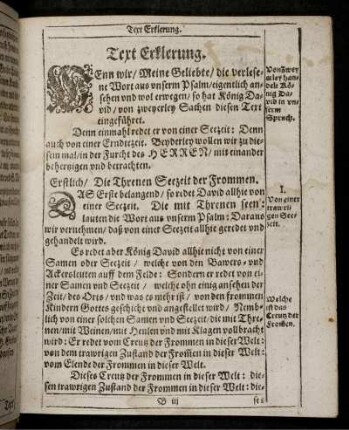 Text Erklerung.
Text Erklerung.
WEnn wir/ Meine Geliebte/ die verlese-
ne Wort aus unserm Psalm/ eigentlich an-
sehen und wol erwegen/ so hat König Da-
vid/ von zweyerley Sachen diesen Text
eingeführet.
Von zwey-
erley han-
delt Kö-
nig Da-
vid in un-
serm
Spruch.
Denn einmahl redet er von einer Seezeit: Denn
auch von einer Erndtezeit. Beyderley wollen wir zu die-
sem mal/ in der Furcht des HERREN/ mit einander
behertzigen und betrachten.
Erstlich/ Die Threnen Seezeit der Frommen.
DAS Erste belangend/ so redet David allhie von
einer Seezeit. Die mit Threnen seen:
lauten die Wort aus unserm Psalm: Daraus
wir vernehmen/ daß von einer Seezeit allhie geredet und
gehandelt wird.
I.
Von einer
trawri-
gen See-
zeit.
Es redet aber König David allhie nicht von einer
Samen oder Seezeit/ welche von den Bawers- und
Ackersleuten auff dem Felde: Sondern er redet von ei-
ner Samen und Seezeit/ welche ohn einig ansehen der
Zeit/ des Orts/ und was es mehr ist/ von den frommen
Kindern Gottes geschicht und angestellet wird/ Nemb-
lich von einer solchen Samen und Seezeit/ die mit Thre-
nen/ mit Weinen/ mit Heulen und mit Klagen vollbracht
wird: Er redet vom Creutz der Frommen in dieser Welt:
von dem trawrigen Zustand der Frommen in dieser Welt:
vom Elende der Frommen in dieser Welt.
Welche
ist das
Creutz der
Frommen.
Dieses Creutz der Frommen in dieser Welt: die-
sen trawrigen Zustand der Frommen in dieser Welt: die-
B iij
ses